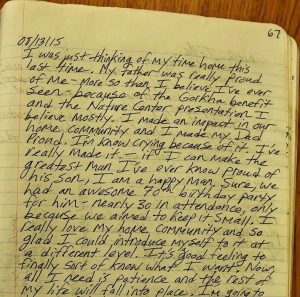 67
08/13/15
I was just thinking of my time home this
last time. My father was really proud
of me - more so than I believe I've ever
seen - because of the Gorkha benefit
and the Nature Center presentation I
believe mostly. I made an impact in our
home community and I made my Dad
proud. I'm know crying because of it. I've
really made it. - if I can make the
greatest man I've ever know proud of
his son, I am a happy man. Sure, we
had an awesome 70th birthday party
for him - nearly 30 in attendance, only
because we aimed to keep it small. I
really love my home community and so
glad I could introduce myself to it at
a different level. It's good feeling to
finally sort of know what I want. Now,
all I need is patience and the rest of
my life will fall into place. I'm going to